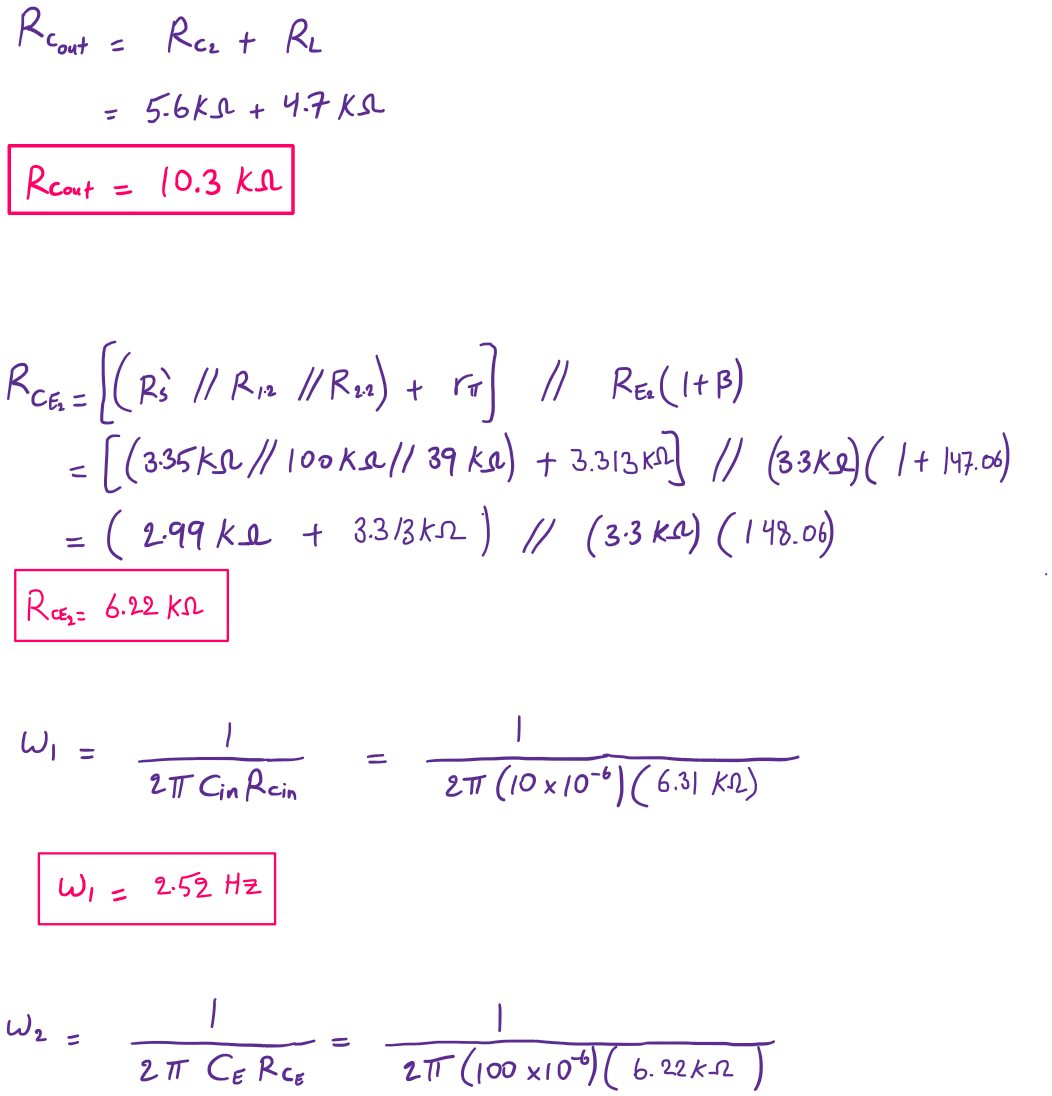 R_Cout = R_C2 + R_L
= 5.6KΩ + 4.7 KΩ
R_Cout = 10.3 KΩ
R_CE2 = [(R_S` // R_1,2 // R_2,2) + r_π] // R_E2(1+β)
= [(3.35KΩ // 100KΩ // 39 KΩ) + 3.313KΩ] // (3.3KΩ)(1 + 147.06)
= (2.99 KΩ + 3.313KΩ) // (3.3 KΩ)(148.06)
R_CE2 = 6.22 KΩ
ω_1 = 1 / (2π C_in R_cin) = 1 / (2π (10 x 10^-6)(6.31 KΩ))
ω_1 = 2.52 Hz
ω_2 = 1 / (2π C_E R_CE) = 1 / (2π (100 x10^-6)(6.22KΩ))